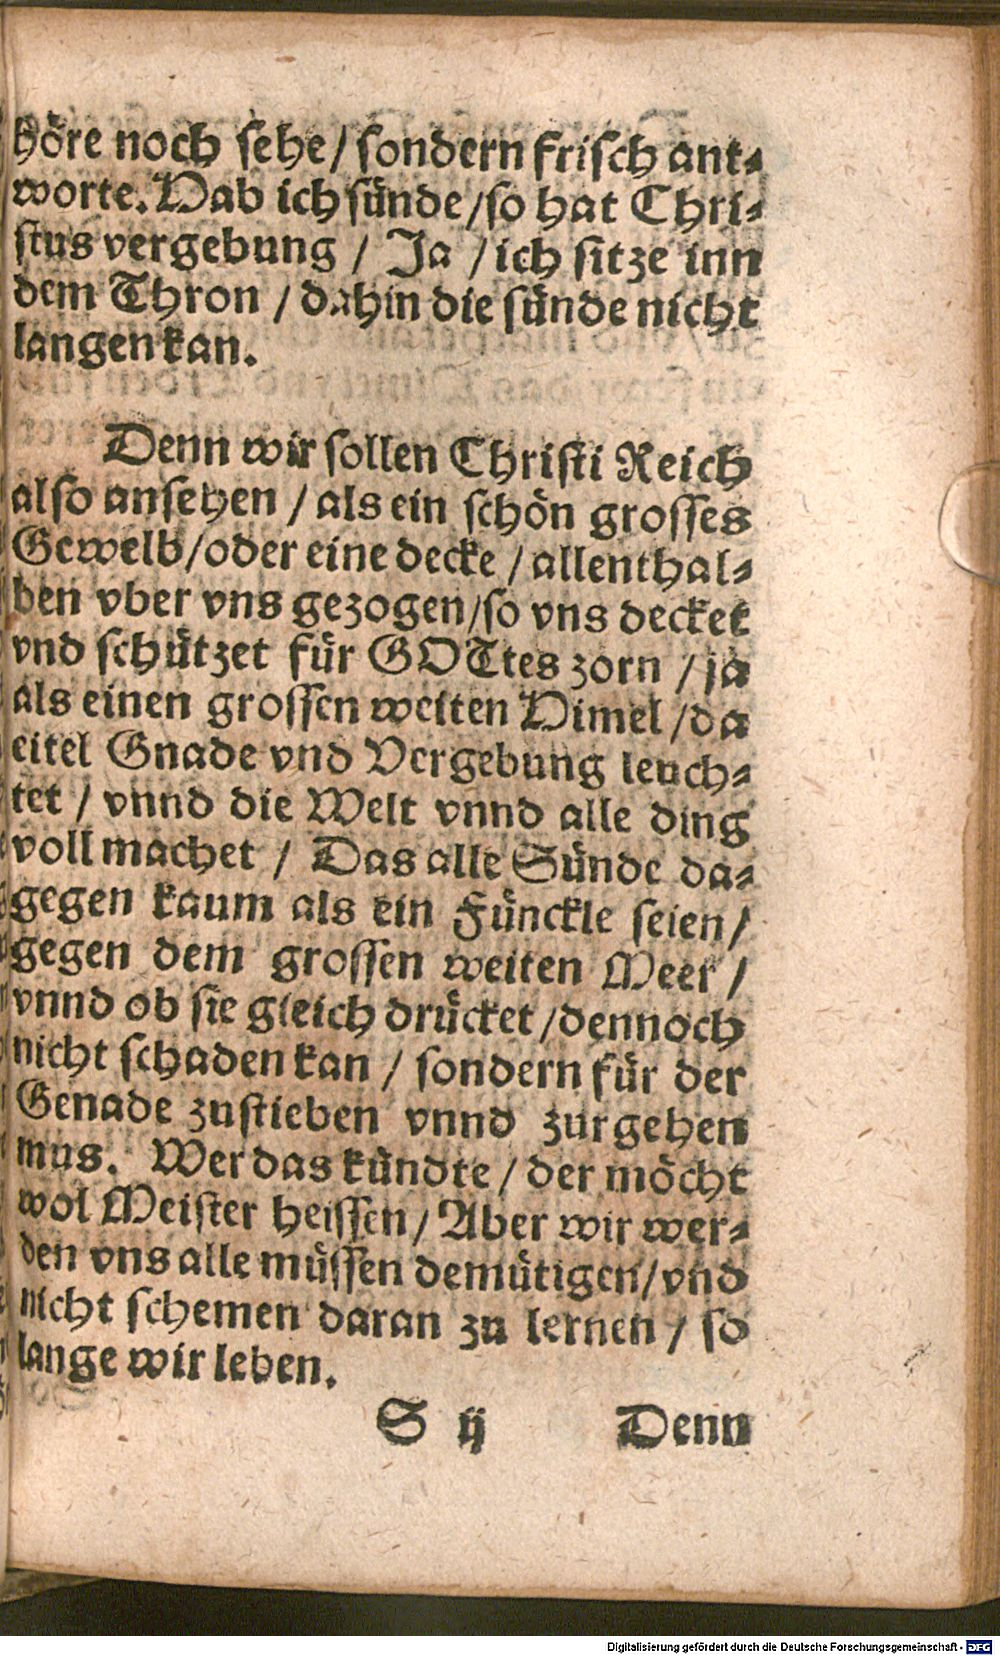 höre noch sehe / sondern frisch ant⸗
worte. Hab ich sünde / so hat Chri⸗
stus vergebung / Ja / ich sitze inn
dem Thron / dahin die sünde nicht
langen kan.
Denn wir sollen Christi Reich
also ansehen / als ein schön grosses
Gewelb / oder eine decke / allenthal⸗
ben vber vns gezogen / so vns decket
vnd schützet für GOTtes zorn / ja
als einen grossen weiten Himel / da
eitel Gnade vnd Vergebung leuch⸗
tet / vnnd die Welt vnnd alle ding
voll machet / Das alle Sünde da⸗
gegen kaum als ein Fünckle seien /
gegen dem grossen weiten Meer /
vnnd ob sie gleich drücket / dennoch
nicht schaden kan / sondern für der
Genade zustieben vnnd zurgehen
mus. Wer das kündte / der möcht
wol Meister heissen / Aber wir wer⸗
den vns alle müssen demütigen / vnd
nicht schemen daran zu lernen / so
lange wir leben.
S ij Denn
Digitalisierung gefördert durch die Deutsche Forschungsgemeinschaft - DFG